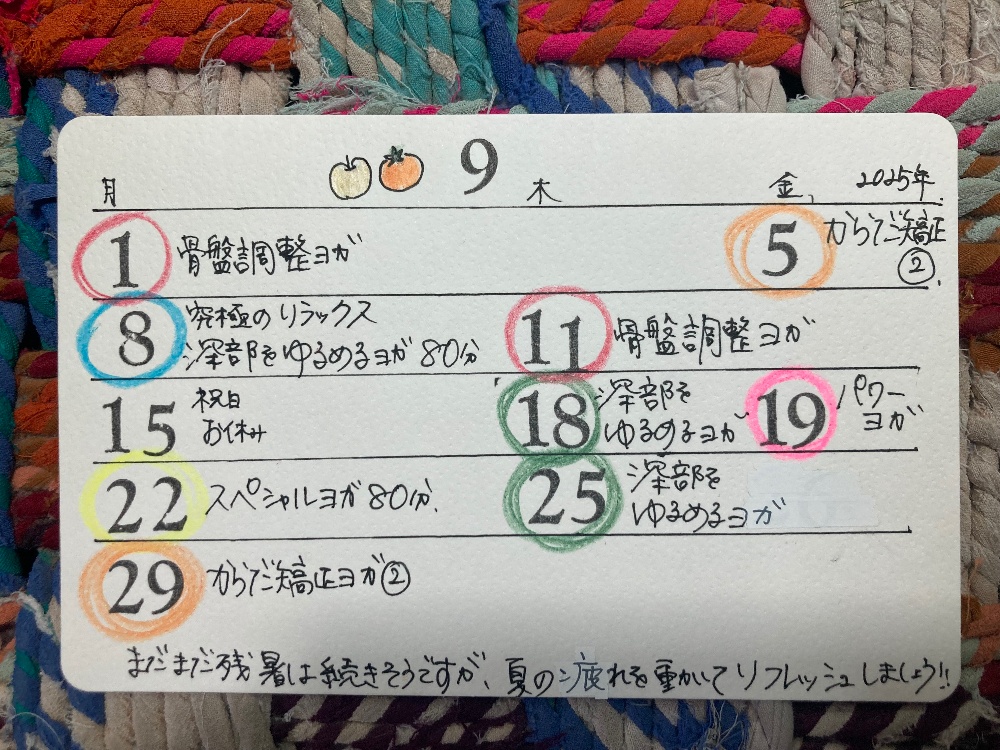 9
月 木 金, 2025年.
1 骨盤調整ヨガ
5 からだ矯正
②
8 究極のリラックス
深部をゆるめるヨガ 80分
11 骨盤調整ヨガ
15 祝日
お休み
18 深部を
ゆるめるヨガ
19 パワー
ヨガ
22 スペシャルヨガ80分.
25 深部を
ゆるめるヨガ
29 からだ矯正ヨガ②
まだまだ残暑は続きそうですが、夏の疲れを動かいてリフレッシュしましょう!!